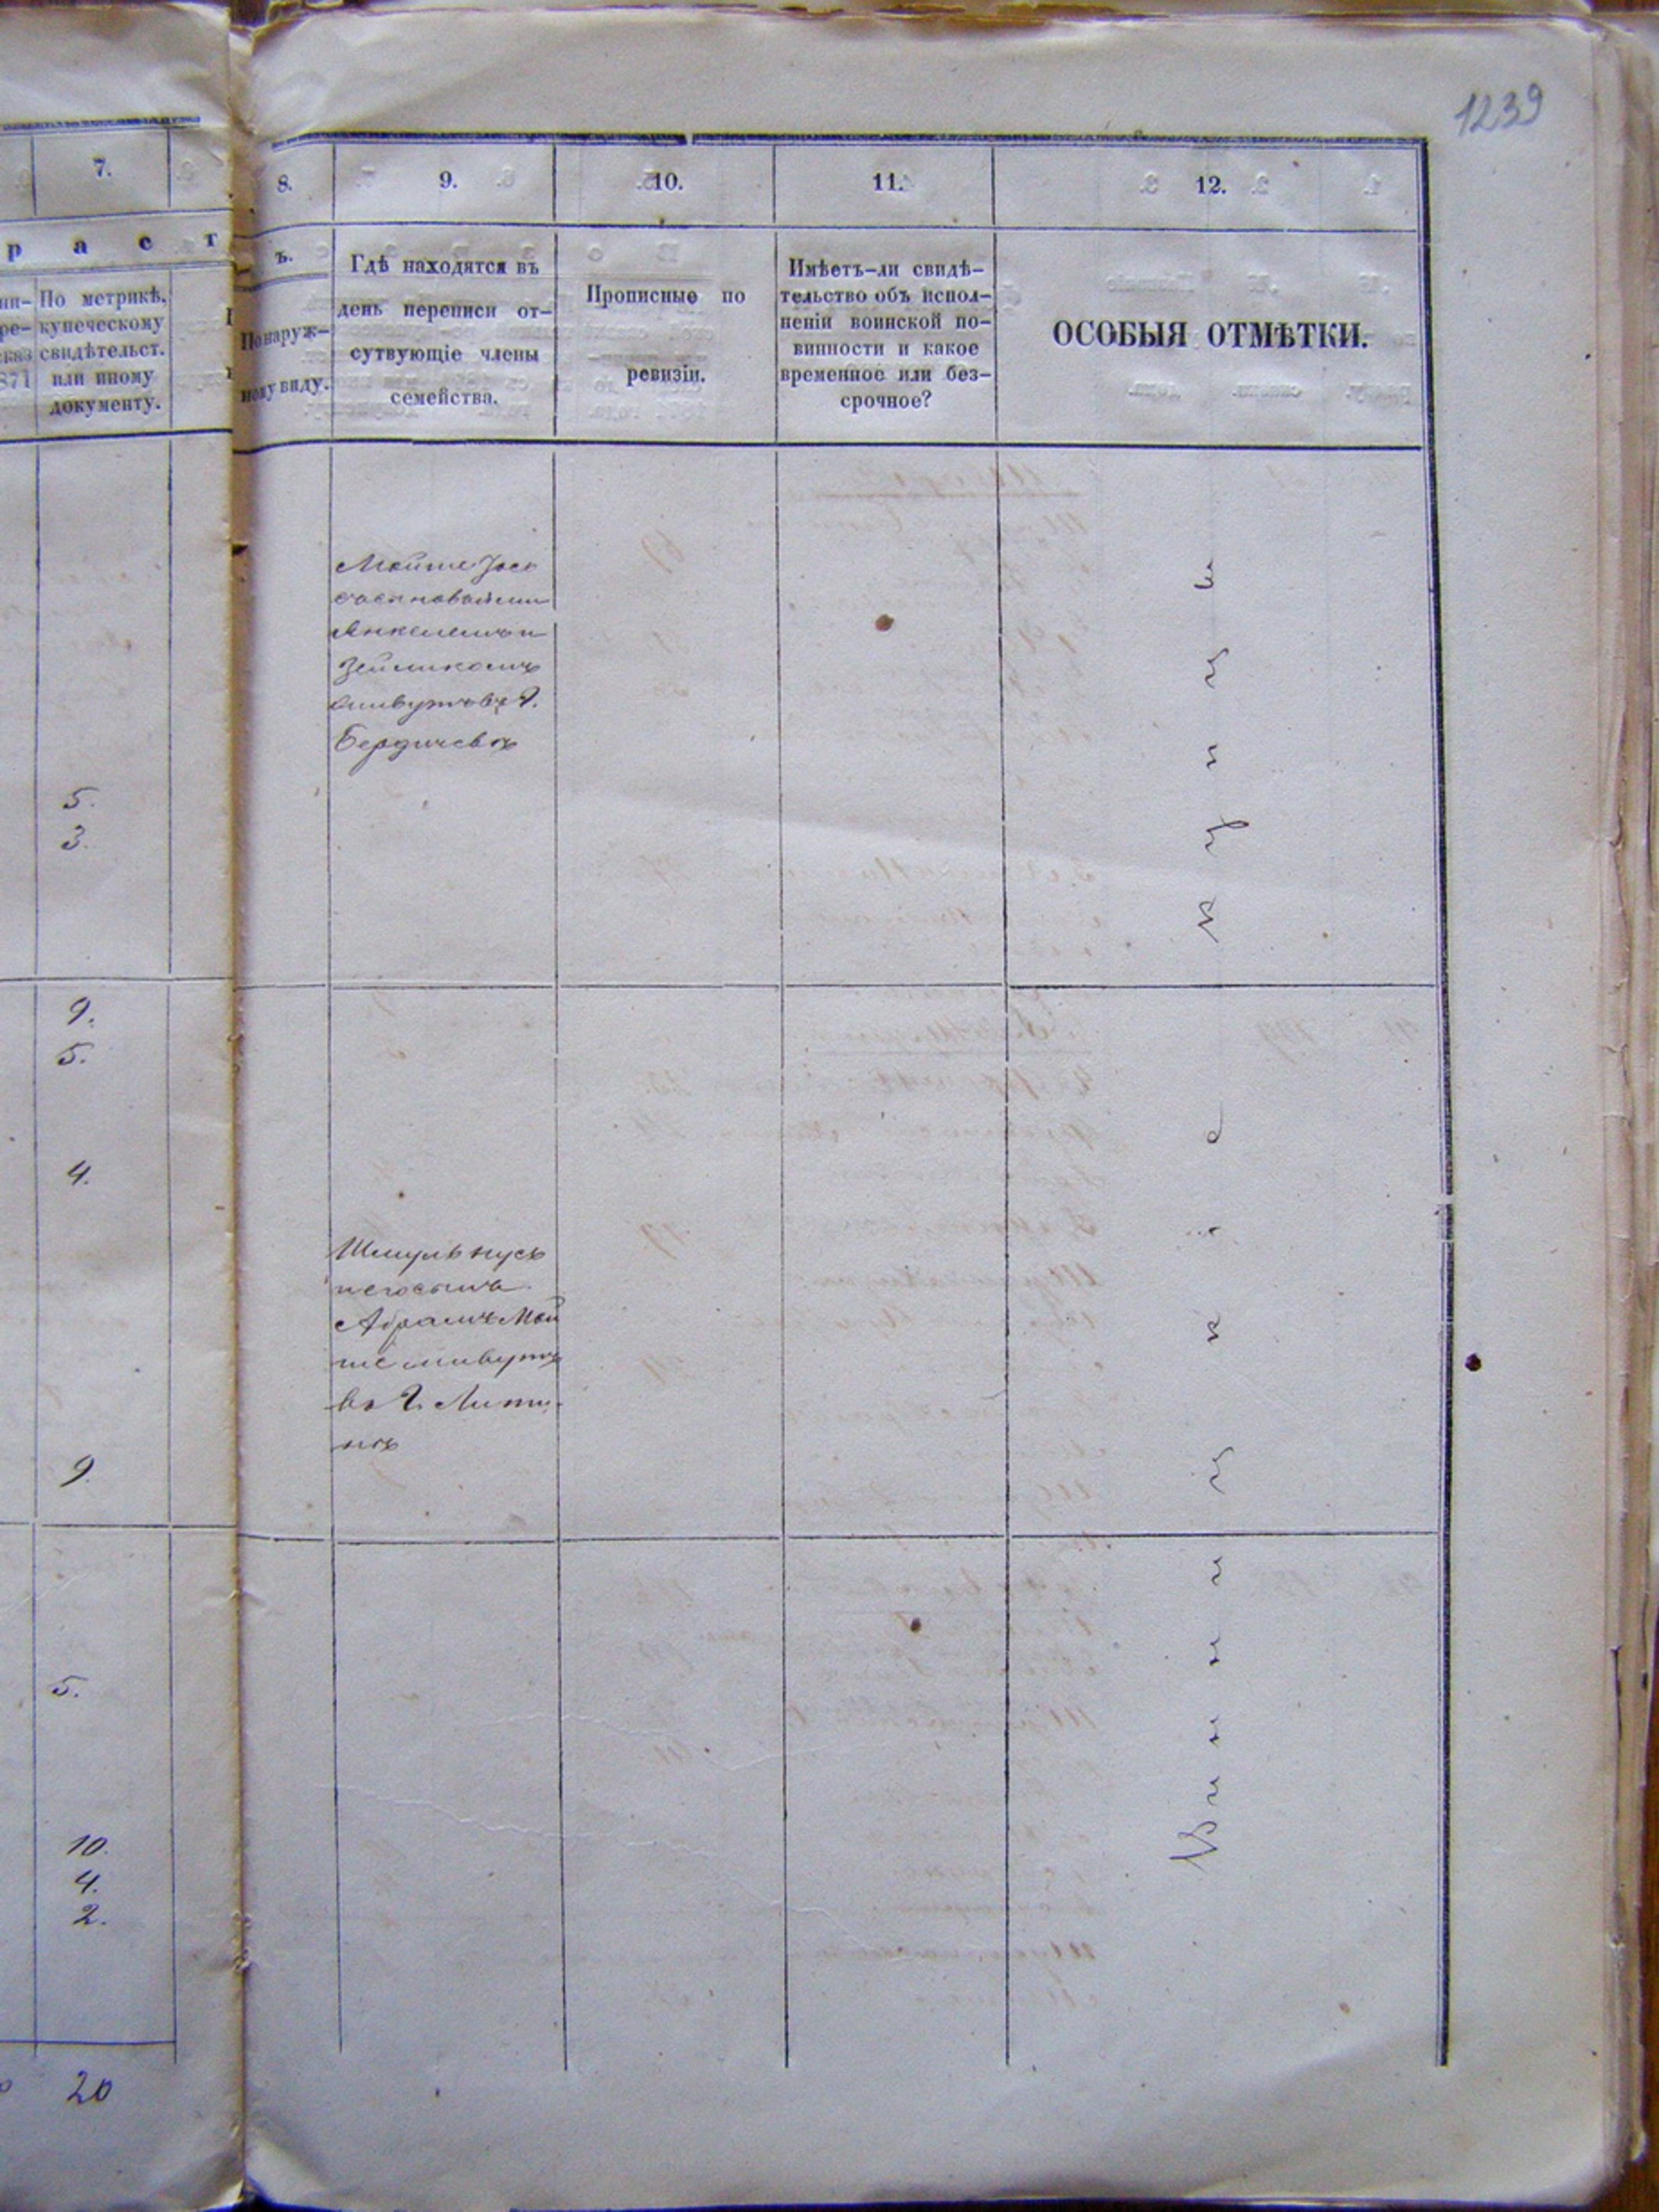 1239
7.
8.
9.
10.
11.
12.
р а с т
ъ.
По метрикѣ,
купеческому
свидѣтельст.
или иному
документу.
871
По наруж-
ному виду.
Гдѣ находятся въ
день переписи от-
сутвующіе члены
семейства.
Прописные по
ревизіи.
Имѣетъ-ли свидѣ-
тельство объ испол-
неніи воинской по-
винности и какое
временное или без-
срочное?
ОСОБЫЯ ОТМѢТКИ.
5.
3.
9.
5.
4.
9.
5.
10.
4.
2.
20
Мойше Іось
съ сыновьями
Зейликомъ
Бердичевѣ
Шмуль
Абрамъ Мой
ше живутъ
въ г. Лити
нѣ
Винницкіе
купцы